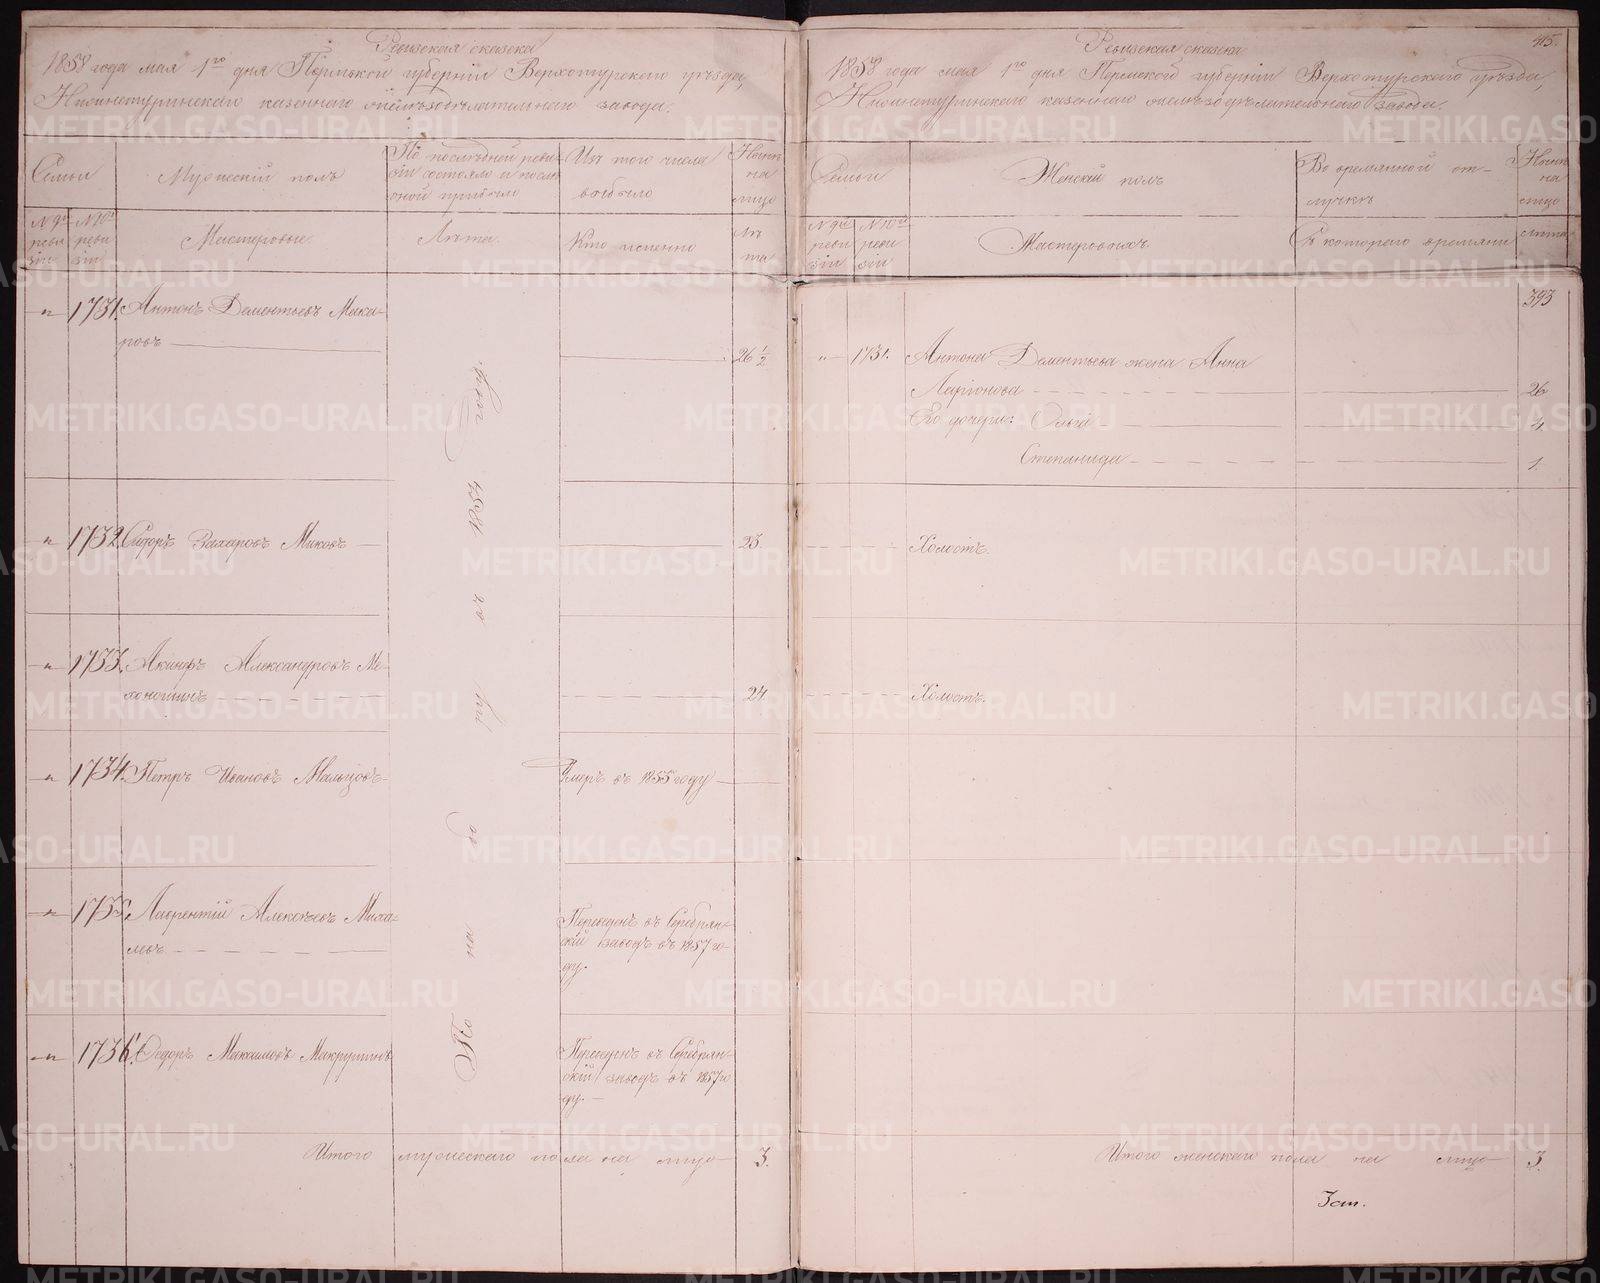 Ревизская сказка
1858 года мая 1го дня Пермской губернии Верхотурского уѣзда,
Нижнетуринскаго казеннаго желѣзодѣлательнаго завода.
Семьи
Мужескій полъ
По послѣдней реви-
зіи состояло и послѣ
оной прибыло
Изъ того числа
выбыло
Нынѣ
на
лицо
№ 9й
реви
зіи
№ 10й
реви
зіи
Мастеровые.
Лѣта.
Кто именно
Лѣ
та
1731. Антонъ Дементьевъ Мака-
ровъ
26 1/2
1732. Сидоръ Захаровъ Миковъ
23.
1733. Акинфъ Александровъ Ме-
хоношинъ
24
1734. Петръ Ивановъ Мальцовъ
Умеръ въ 1855 году
1735. Лаврентій Алексѣевъ Миха-
левъ
Переведенъ въ Серебрян-
скій заводъ въ 1857 го-
ду.
1736. Федоръ Максимовъ
Переведенъ въ Серебрян-
скій заводъ въ 1857 го
ду.
Итого мужескаго пола на лицо 3.
Ревизская сказка
415.
1858 года мая 1го дня Пермской губерніи Верхотурскаго уѣзда,
Нижнетуринскаго казеннаго желѣзодѣлательнаго завода.
Семьи
Женскій полъ
Во временной от-
лучкѣ
Нынѣ
на
лицо
№ 9й
реви
зіи
№ 10й
реви
зіи
Мастеровыхъ
Съ котораго времяни
лѣта
393
1731. Антона Дементьева жена Анна
Ларіонова 26
Его дочери: Ольга 4.
Степанида 1.
Холостъ.
Холостъ.
Итого женскаго пола на лицо 3.
METRIKI.GASO-URAL.RU